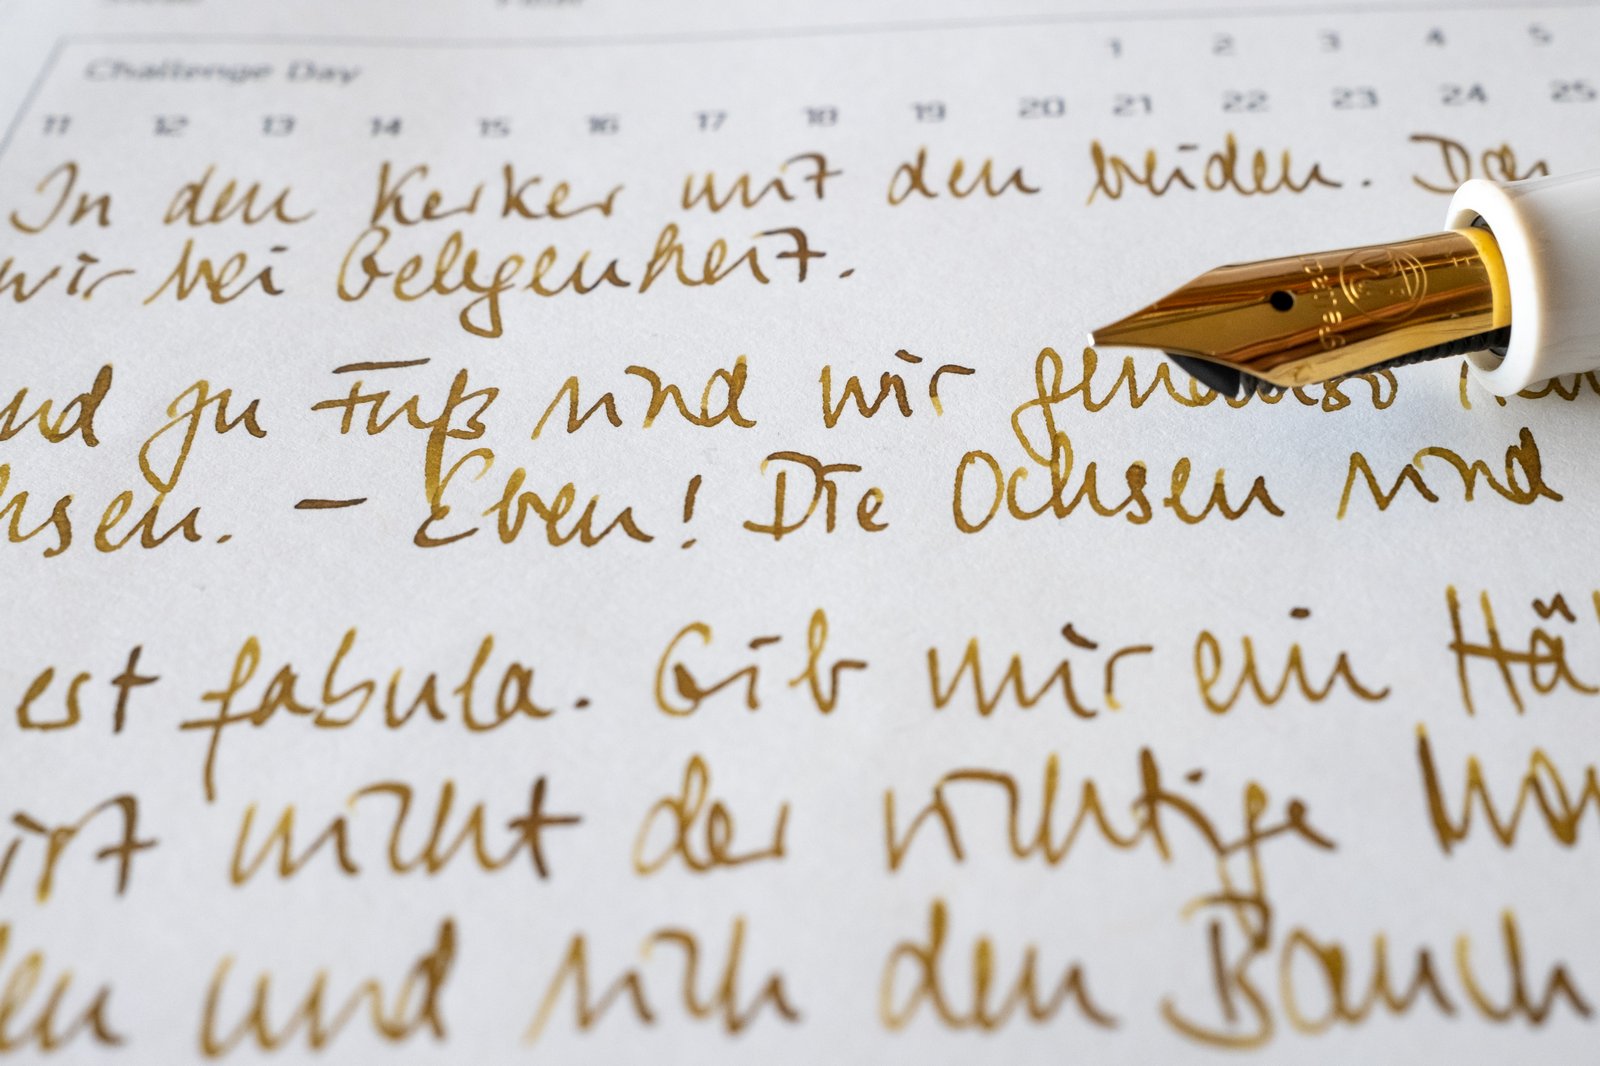 Challenge Day 1 2 3 4 5
11 12 13 14 15 16 17 18 19 20 21 22 23 24 25
In den Kerker mit den beiden. Den
wir bei Gelegenheit.
nd zu Fuß sind wir genauso
hsen. – Eben! Die Ochsen sind
est fabula. Gib mir ein Hä
irst nicht der richtige
en und sich den Bauch